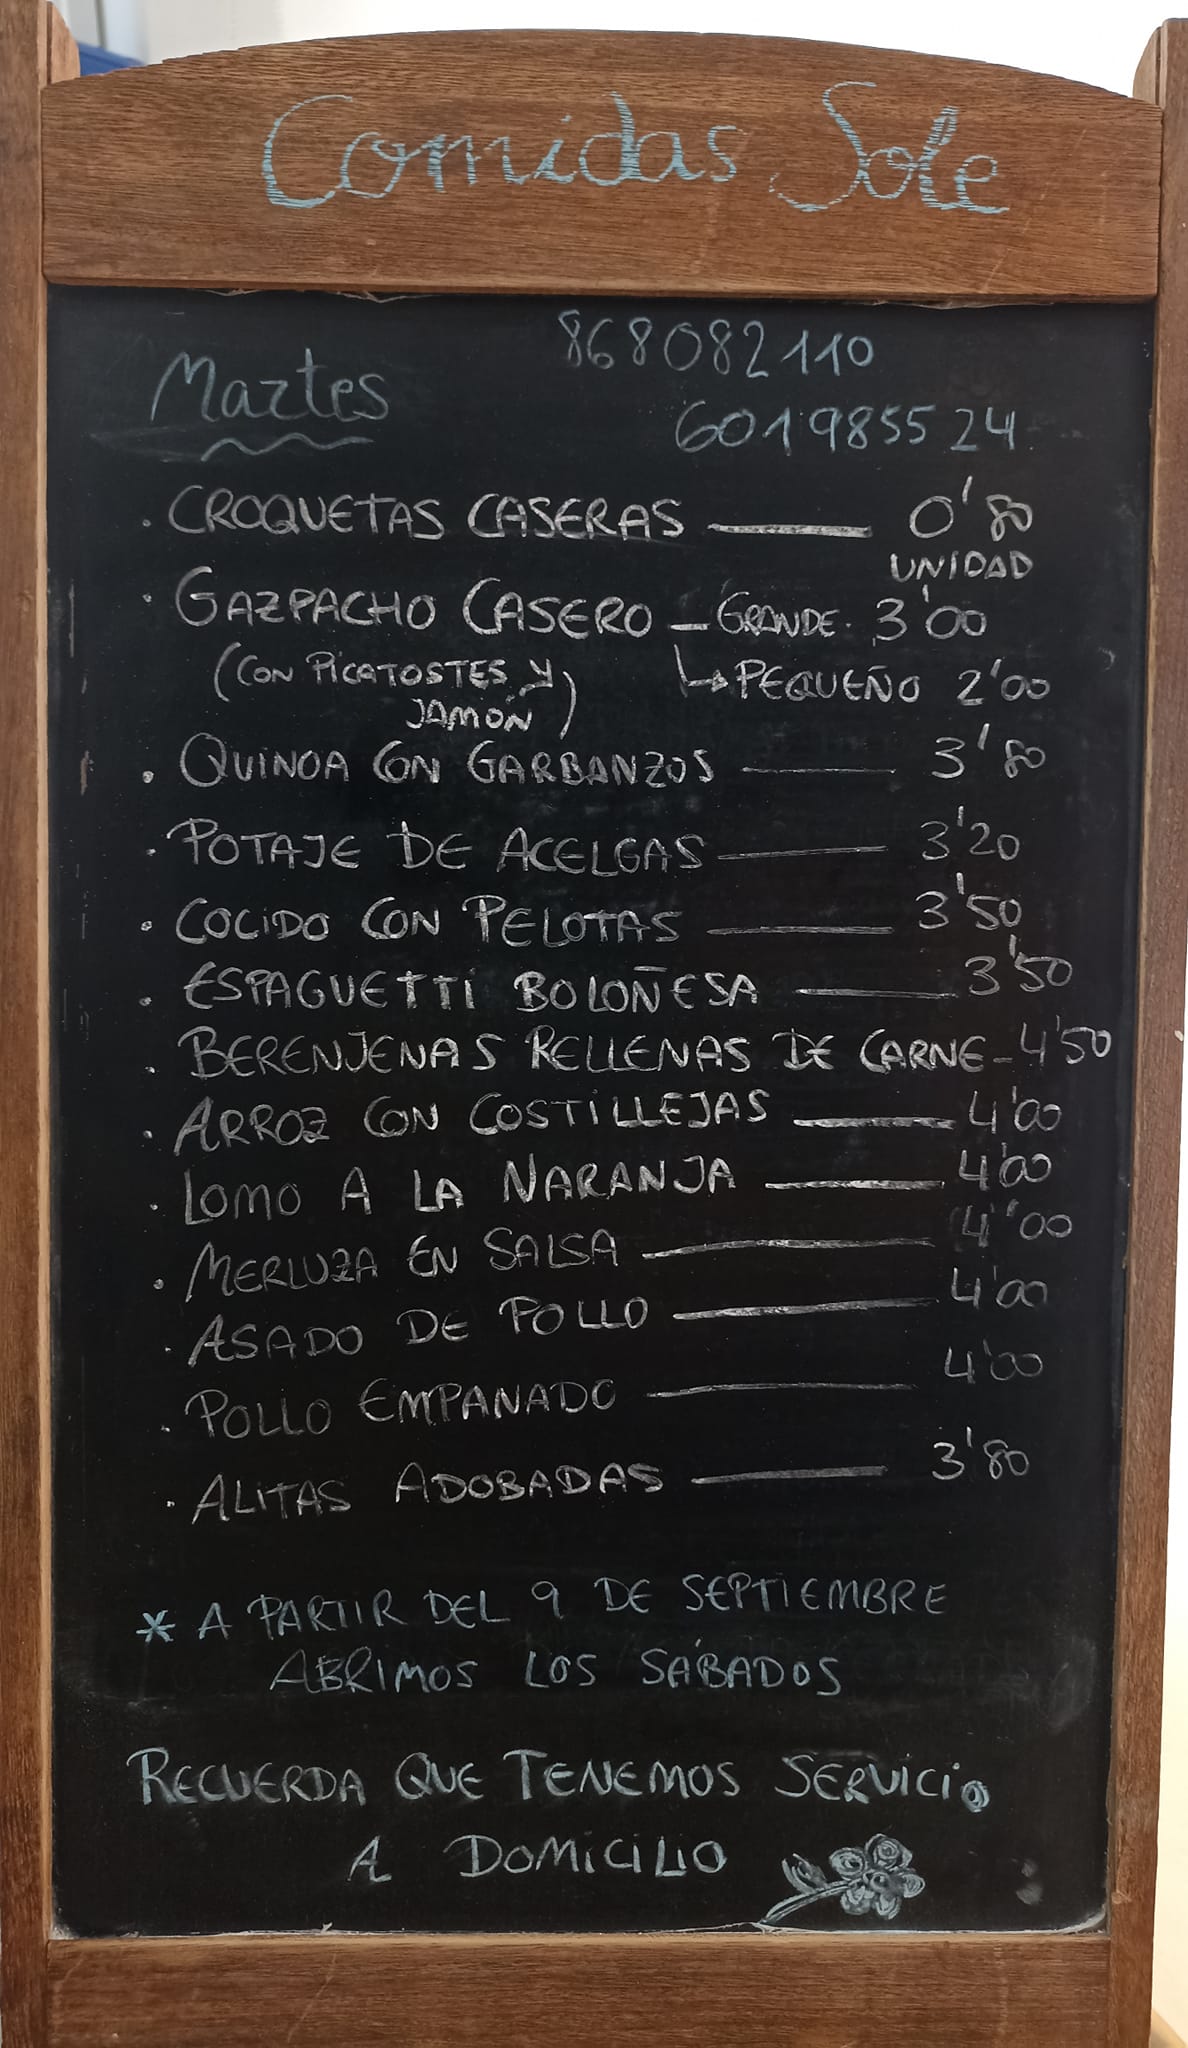 Comidas Sole
868082110
Martes
601985524
. CROQUETAS CASERAS — 0'80
UNIDAD
. GAZPACHO CASERO — GRANDE. 3'00
(CON PICATOSTES Y ↳ PEQUEÑO 2'00
JAMÓN)
. QUINOA CON GARBANZOS — 3'80
. POTAJE DE ACELGAS — 3'20
. COCIDO CON PELOTAS — 3'50
. ESPAGUETTI BOLOÑESA — 3'50
. BERENJENAS RELLENAS DE CARNE — 4'50
. ARROZ CON COSTILLEJAS — 4'00
. LOMO A LA NARANJA — 4'00
. MERLUZA EN SALSA — 4'00
. ASADO DE POLLO — 4'00
. POLLO EMPANADO — 4'00
. ALITAS ADOBADAS — 3'80
* A PARTIR DEL 9 DE SEPTIEMBRE
ABRIMOS LOS SÁBADOS
RECUERDA QUE TENEMOS SERVICIO
A DOMICILIO